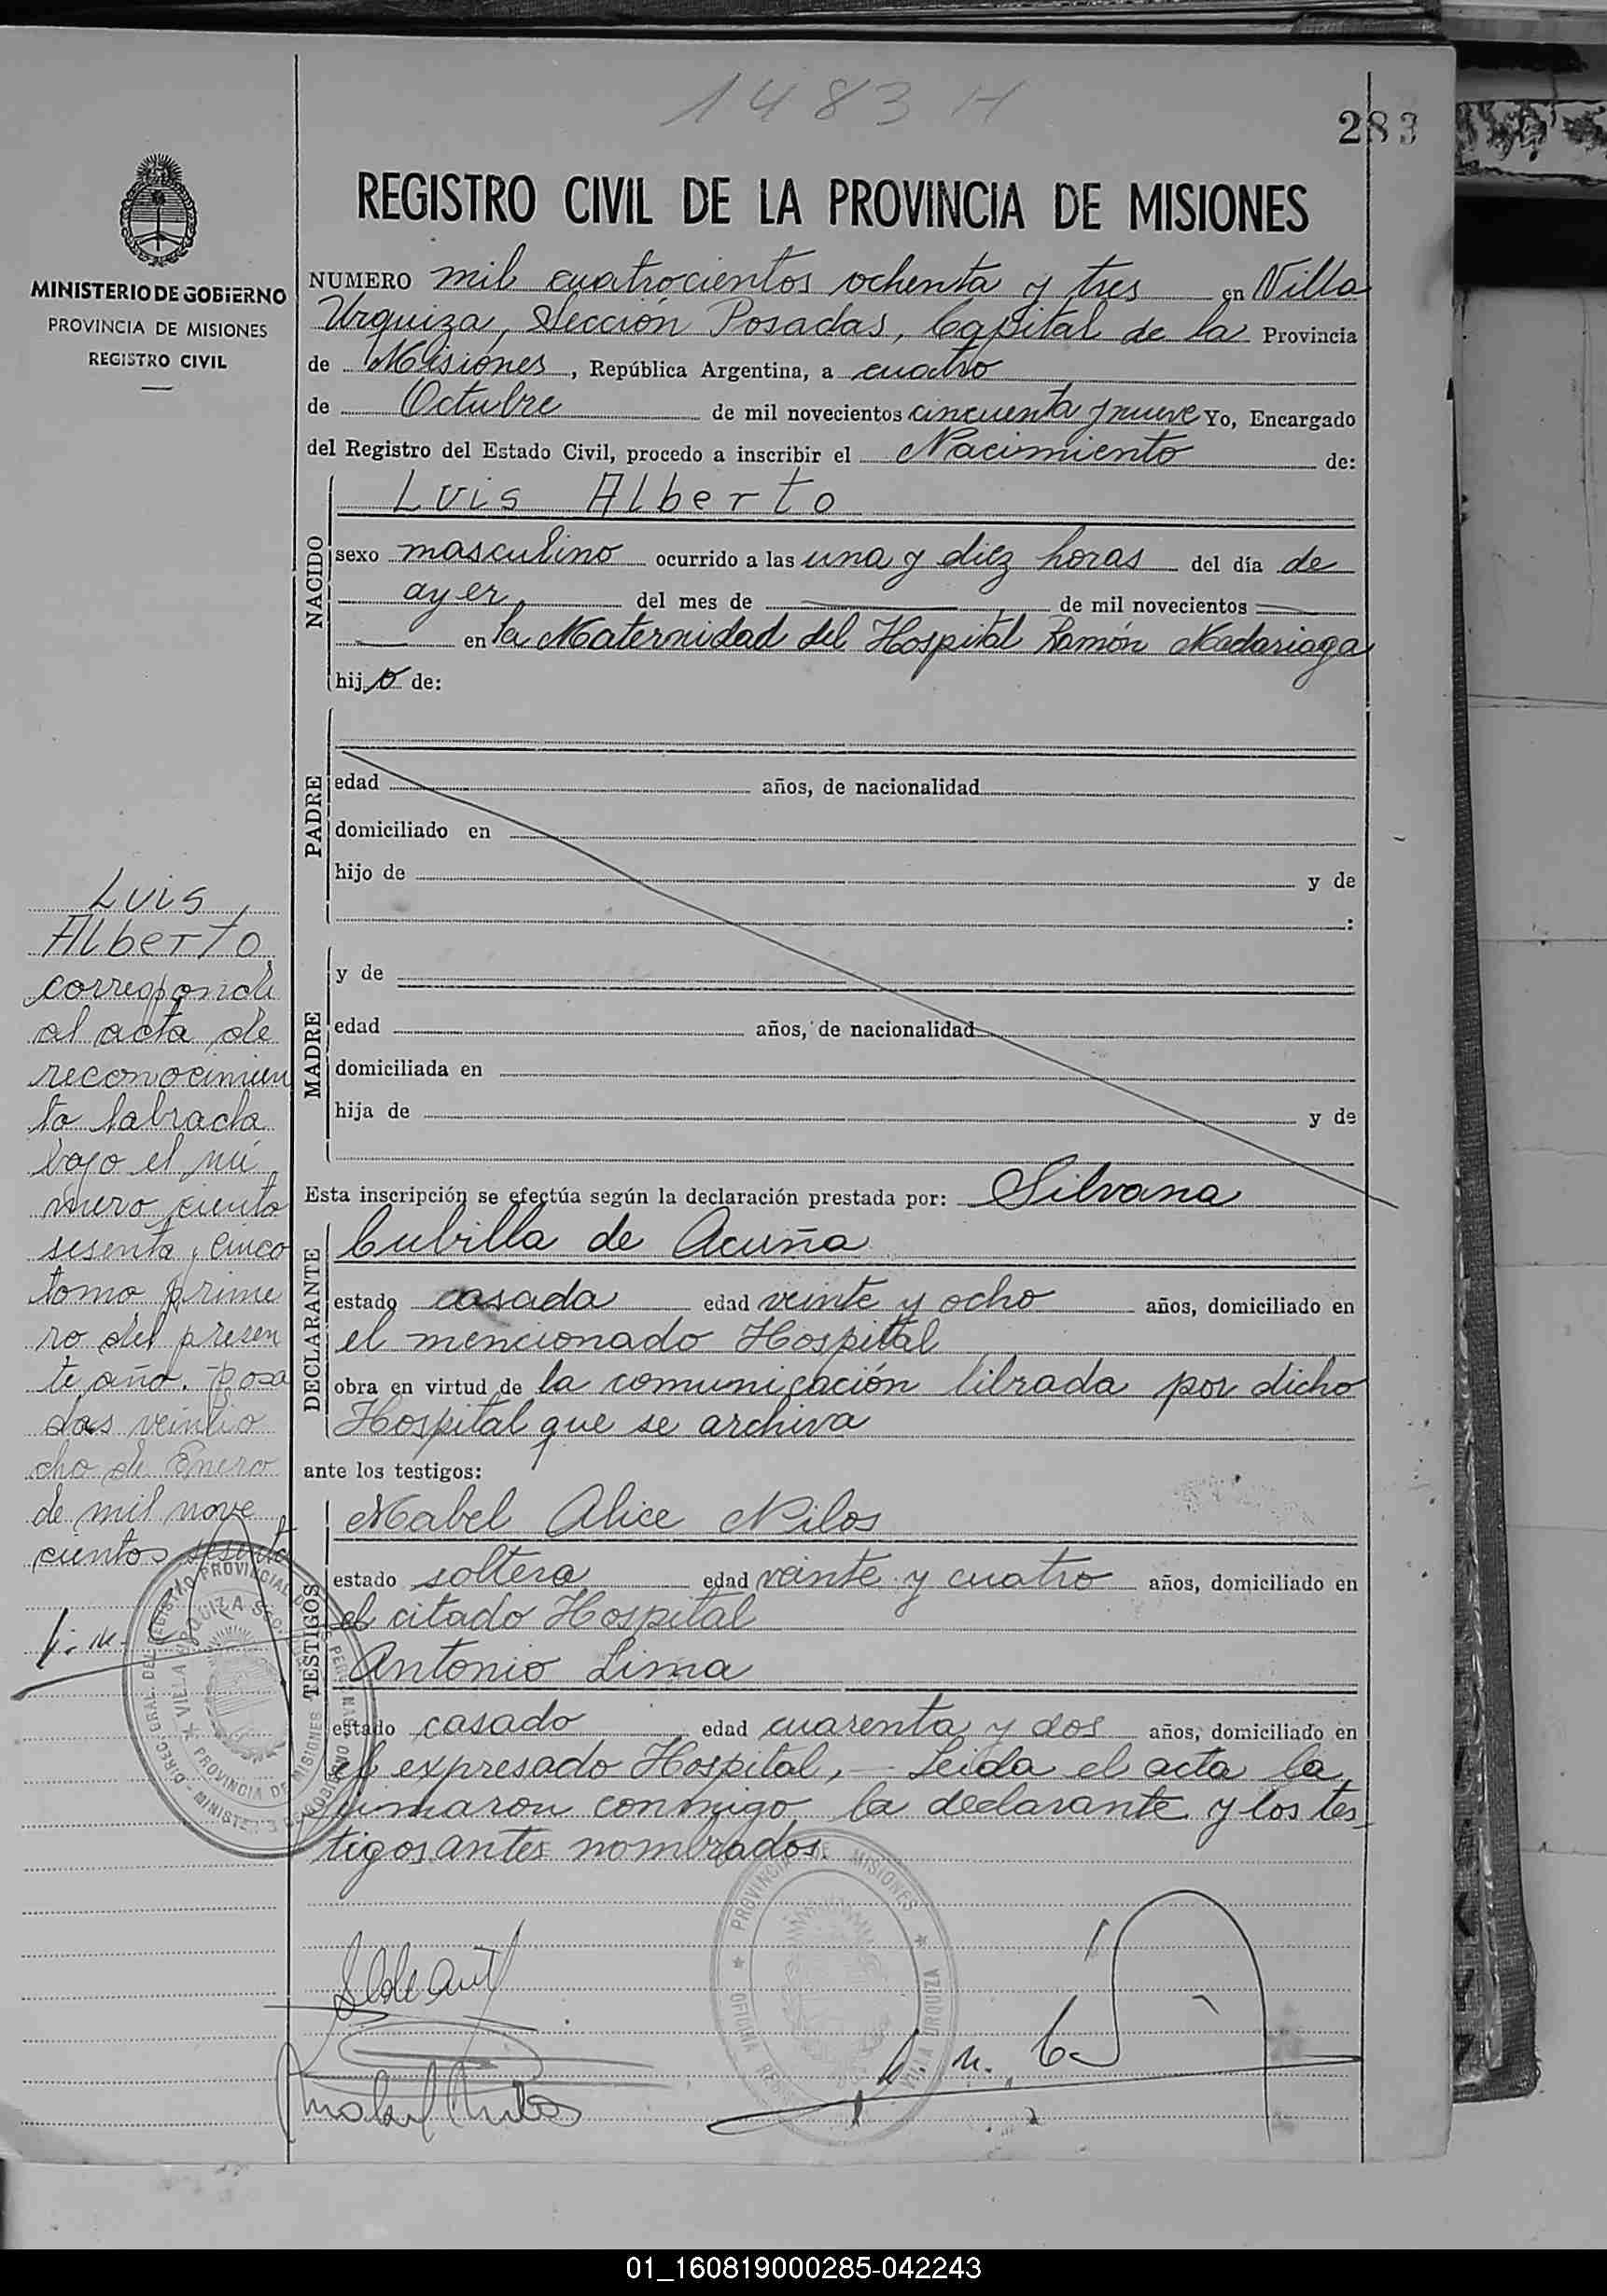 1483 H
283
MINISTERIO DE GOBIERNO
PROVINCIA DE MISIONES
REGISTRO CIVIL
REGISTRO CIVIL DE LA PROVINCIA DE MISIONES
NUMERO mil cuatrocientos ochenta y tres en Villa
Urquiza, Sección Posadas, Capital de la Provincia
de Misiones, República Argentina, a cuatro
de Octubre de mil novecientos cincuenta y nueve Yo, Encargado
del Registro del Estado Civil, procedo a inscribir el Nacimiento de:
NACIDO
Luis Alberto
sexo masculino ocurrido a las una y diez horas del día de
ayer del mes de de mil novecientos
en la Maternidad del Hospital Ramón Madariaga
hijo de:
PADRE
edad años, de nacionalidad
domiciliado en
hijo de y de
:
MADRE
y de
edad años, de nacionalidad
domiciliada en
hija de y de
Esta inscripción se efectúa según la declaración prestada por: Silvana
DECLARANTE
Cubilla de Acuña
estado casada edad veinte y ocho años, domiciliado en
el mencionado Hospital
obra en virtud de la comunicación librada por dicho
Hospital que se archiva
ante los testigos:
TESTIGOS
Mabel Alice Nilos
estado soltera edad veinte y cuatro años, domiciliado en
el citado Hospital
Antonio Lima
estado casado edad cuarenta y dos años, domiciliado en
el expresado Hospital, - Leida el acta la
firmaron conmigo la declarante y los tes-
tigos antes nombrados
Luis
Alberto
corresponde
al acta de
reconocimien
to labrada
bajo el nú
mero ciento
sesenta y cinco
tomo prime
ro del presen
te año. Posa
das veintio
cho de Enero
de mil nove
cientos sesenta
PROVINCIA DE MISIONES
OFICINA
VILLA URQUIZA
01_160819000285-042243